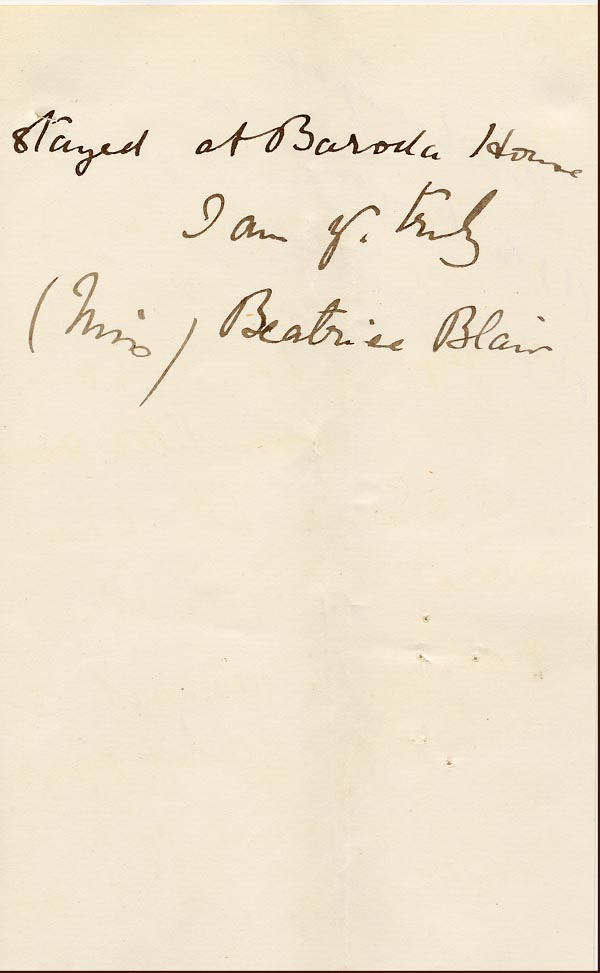 stayed at Baroda House
I am yr. truly
(Miss) Beatrice Blair